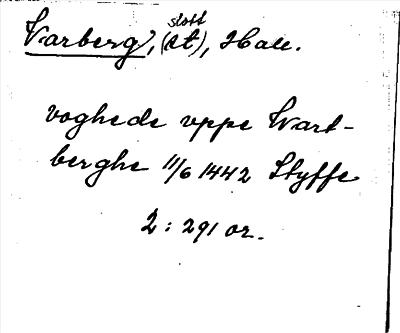 slott
Varberg, (st), Hall.
voghede vppe Wart-
berghe 11/6 1442 Styffe
2 : 291 or.